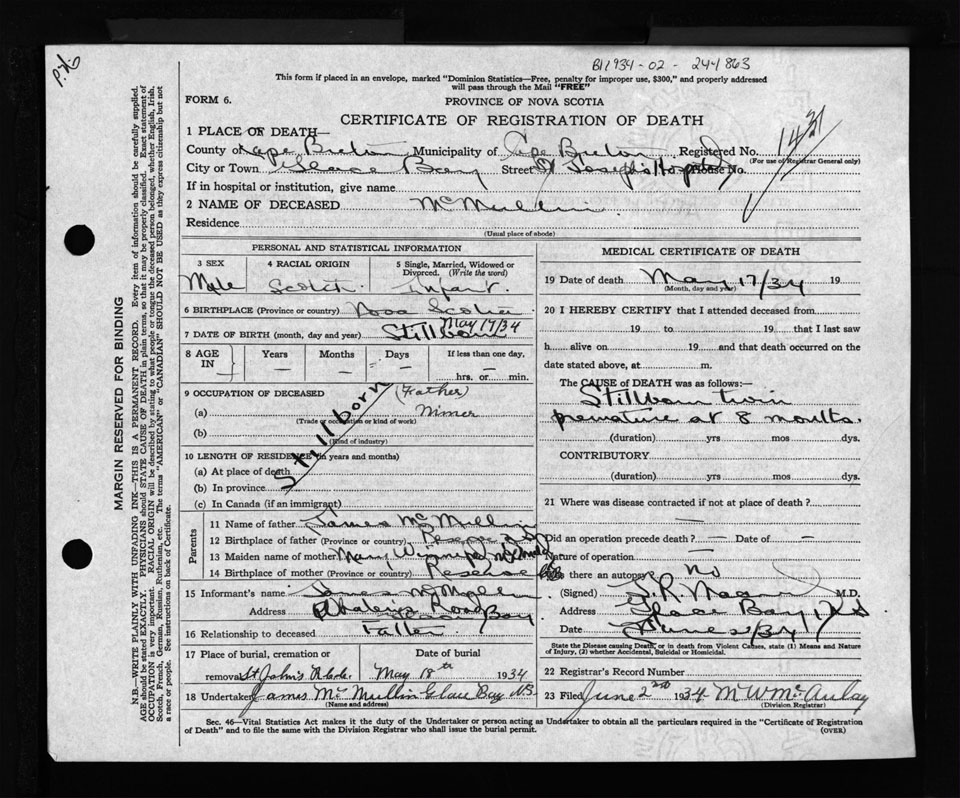 P.H.
B11934-02-244863
This form if placed in an envelope, marked "Dominion Statistics—Free, penalty for improper use, $300," and properly addressed
will pass through the Mail "FREE"
FORM 6.
PROVINCE OF NOVA SCOTIA
CERTIFICATE OF REGISTRATION OF DEATH
1 PLACE OF DEATH—
County of Cape Breton Municipality of Cape Breton Registered No. 1431
(For use of Registrar General only)
City or Town Glace Bay Street St Joseph's Hospital House No.
If in hospital or institution, give name
2 NAME OF DECEASED McMullin
Residence
(Usual place of abode)
PERSONAL AND STATISTICAL INFORMATION
3 SEX 4 RACIAL ORIGIN 5 Single, Married, Widowed or Divorced. (Write the word)
Male Scotch Infant.
6 BIRTHPLACE (Province or country) Nova Scotia
7 DATE OF BIRTH (month, day and year) Stillborn May 17/34
8 AGE IN Years Months Days If less than one day,
— — — — hrs. or min.
9 OCCUPATION OF DECEASED (Father)
(a) Miner
(Trade or occupation or kind of work)
(b)
(Kind of industry)
Stillborn
10 LENGTH OF RESIDENCE (in years and months)
(a) At place of death
(b) In province
(c) In Canada (if an immigrant)
Parents
11 Name of father James McMullin
12 Birthplace of father (Province or country) Reserve
13 Maiden name of mother Mary Winnifred
14 Birthplace of mother (Province or country) Reserve
15 Informant's name James McMullin
Address Road Glace Bay
16 Relationship to deceased Father
17 Place of burial, cremation or removal Date of burial
St John's May 18th 1934
18 Undertaker James McMullin Glace Bay N.S.
(Name and address)
MEDICAL CERTIFICATE OF DEATH
19 Date of death May 17/34 19
(Month, day and year)
20 I HEREBY CERTIFY that I attended deceased from
19 to 19 that I last saw
h alive on 19 and that death occurred on the
date stated above, at m.
The CAUSE of DEATH was as follows:—
Stillborn twin
premature at 8 months.
(duration) yrs mos dys.
CONTRIBUTORY
(duration) yrs mos dys.
21 Where was disease contracted if not at place of death?
—
Did an operation precede death? — Date of —
Nature of operation —
Was there an autopsy No
(Signed) M.D.
Address Glace Bay N S
Date June 2/34
State the Disease causing Death, or in death from Violent Causes, state (1) Means and
Nature of Injury, (2) whether Accidental, Suicidal or Homicidal.
22 Registrar's Record Number
23 Filed June 2nd 1934 M W McAulay
(Division Registrar)
Sec. 46—Vital Statistics Act makes it the duty of the Undertaker or person acting as Undertaker to obtain all the particulars required in the "Certificate of Registration
of Death" and to file the same with the Division Registrar who shall issue the burial permit.
(OVER)
MARGIN RESERVED FOR BINDING
N.B.—WRITE PLAINLY WITH UNFADING INK—THIS IS A PERMANENT RECORD. Every item of information should be carefully supplied.
AGE should be stated EXACTLY. PHYSICIANS should STATE CAUSE OF DEATH in plain terms, so that it may be properly classified. Exact statement of
OCCUPATION is very important. RACIAL ORIGIN will be described by stating to what people or tongue the deceased person belonged, whether English, Irish,
Scotch, French, German, Russian, Ruthenian, etc. The terms "AMERICAN" or "CANADIAN" SHOULD NOT BE USED as they express citizenship but not
a race or people. See instructions on back of Certificate.